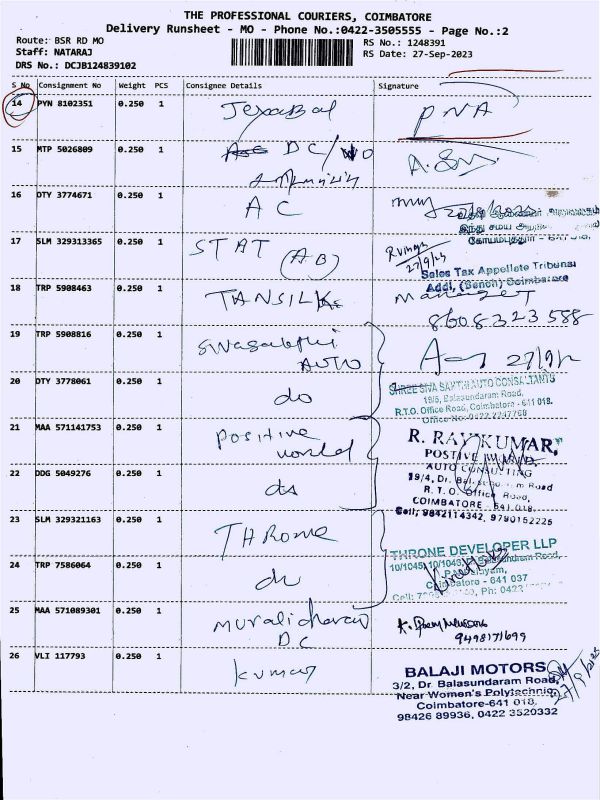 THE PROFESSIONAL COURIERS, COIMBATORE
Delivery Runsheet - MO - Phone No.:0422-3505555 - Page No.:2
Route: BSR RD MO
RS No.: 1248391
Staff: NATARAJ
RS Date: 27-Sep-2023
DRS No.: DCJB124839102
S No Consignment No Weight PCS Consignee Details Signature
14 PYN 8102351 0.250 1 PNA
15 MTP 5026809 0.250 1 DC/
16 DTY 3774671 0.250 1 AC
17 SLM 329313365 0.250 1 STAT (AB)
27/9/23
Sales Tax Appellate Tribunal
Addl. (Bench) Coimbatore
18 TRP 5908463 0.250 1 TANSILK Manager
8608323588
19 TRP 5908816 0.250 1 Swasakthi
AUTO
20 DTY 3778061 0.250 1 do
SHREE SIVA SAKTHI AUTO CONSULTANTS
19/5, Balasundaram Road,
R.T.O. Office Road, Coimbatore - 641 018.
Office No:0422 2247768
21 MAA 571141753 0.250 1 Positive
world
R. RAVIKUMAR,
POSTIVE WORLD.
AUTO CONSULTING
22 DDG 5049276 0.250 1 do
19/4, Dr. Balasundaram Road
R. T. O. Office Road,
COIMBATORE - 641 018.
Cell; 9842114342, 9790152225
23 SLM 329321163 0.250 1 THRone
THRONE DEVELOPER LLP
10/1045, 10/1043, Balasundram Road,
24 TRP 7586064 0.250 1 do
Coimbatore - 641 037
25 MAA 571089301 0.250 1 Muralidharan
DC
9498171699
26 VLI 117793 0.250 1 Kumar
BALAJI MOTORS
3/2, Dr. Balasundaram Road,
Near Women's Polytechnic,
Coimbatore-641 018,
98426 89936, 0422 3520332